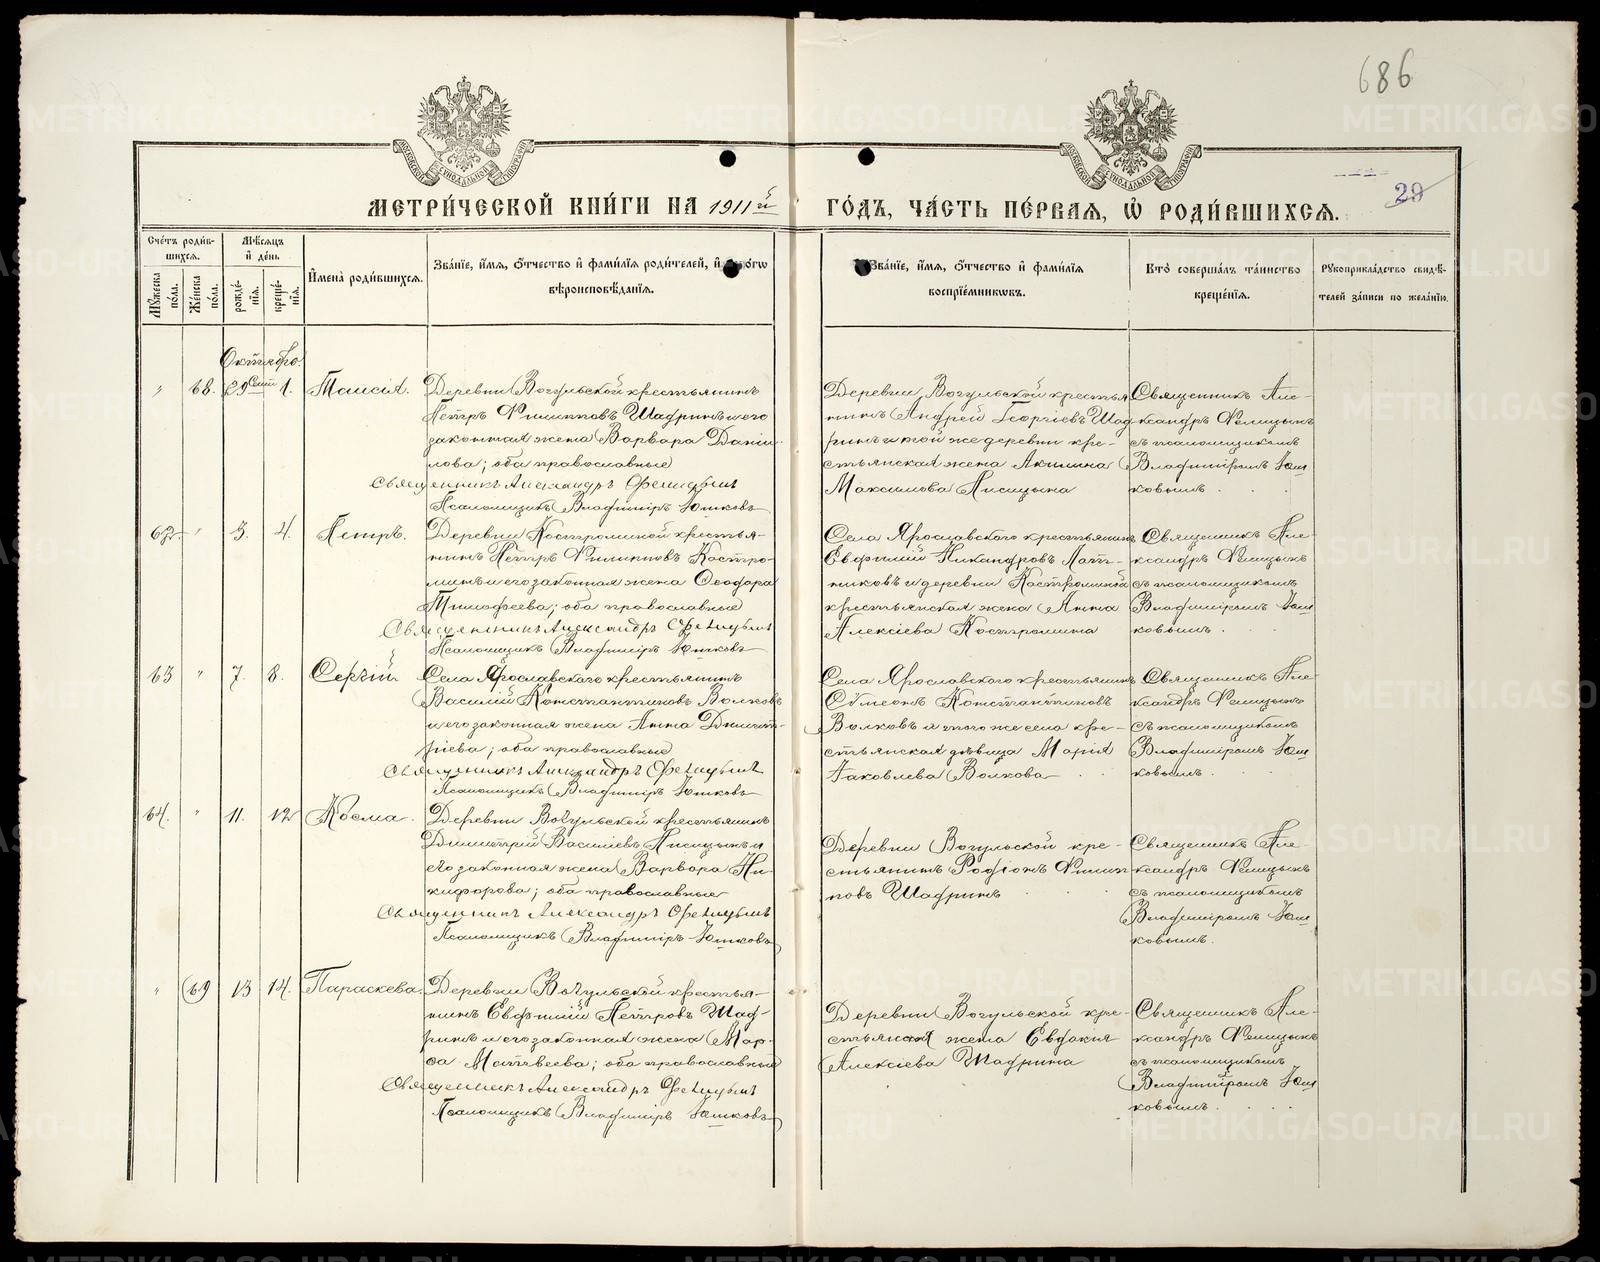 686
20
МЕТРИ́ЧЕСКОЙ КНИ́ГИ НА 1911й ГО́ДЪ, ЧА́СТЬ ПЕ́РВАЯ, Ѽ РОДИ́ВШИХСЯ.
Сче́тъ роди́вшихся.
Му́жеска по́ла.
Же́нска по́ла.
Мѣ́сяцъ и҆ де́нь
рожде́нїя.
креще́нїя.
И҆мена̀ роди́вшихся.
Зва́нїе, и҆́мя, ѻ҆́тчество и҆ фами́лїя роди́телей, и҆ како́гѡ
вѣроисповѣ́данїя.
Зва́нїе, и҆́мя, ѻ҆́тчество и҆ фами́лїя
воспрїе́мникѡвъ.
Кто̀ соверша́лъ та́инство
креще́нїя.
Рꙋкоприкла́дство свидѣ́-
телей за́писи по жела́нїю.
Октябрь.
" 68. 29 Сент 1. Таисія.
Деревни Вогульской крестьянинъ
Петръ Филипповъ Шадринъ и его
законная жена Варвара Дани-
лова; оба православные
Священникъ Александръ Фелицынъ
Псаломщикъ Владиміръ Юшковъ
Деревни Вогульской крестья
нинъ Андрей Георгіевъ Шад
ринъ и той же деревни кре-
стьянская жена Акилина
Максимова Лисицына
Священникъ Але-
ксандръ Фелицынъ
съ псаломщикомъ
Владиміромъ Юш
ковымъ.
62 " 3. 4. Петръ.
Деревни Костроминой крестья-
нинъ Петръ Филипповъ Костро-
минъ и его законная жена Ѳеодора
Тимофеева; оба православные
Священникъ Александръ Фелицынъ
Псаломщикъ Владиміръ Юшковъ
Села Ярославскаго крестьянинъ
Евфимій Никандровъ Лапт-
никовъ и деревни Костроминой
крестьянская жена Анна
Алексіева Костромина
Священникъ Але-
ксандръ Фелицынъ
съ псаломщикомъ
Владиміромъ Юш
ковымъ.
63 " 7. 8. Сергій
Села Ярославскаго крестьянинъ
Василій Константиновъ Волковъ
и его законная жена Анна Димит-
ріева; оба православные
Священникъ Александръ Фелицынъ
Псаломщикъ Владиміръ Юшковъ
Села Ярославскаго крестьянинъ
Сѵмеонъ Константиновъ
Волковъ и того же села кре-
стьянская дѣвица Марія
Іаковлева Волкова
Священникъ Але-
ксандръ Фелицынъ
съ псаломщикомъ
Владиміромъ Юш
ковымъ.
64. " 11. 12 Косма.
Деревни Вогульской крестьянинъ
Димитрій Василіевъ Лисицынъ и
его законная жена Варвара Ни-
кифорова; оба православные
Священникъ Александръ Фелицынъ
Псаломщикъ Владиміръ Юшковъ
Деревни Вогульской кре-
стьянинъ Родіонъ Филип
повъ Шадринъ
Священникъ Але-
ксандръ Фелицынъ
съ псаломщикомъ
Владиміромъ Юш
ковымъ.
" 69 13 14. Параскева.
Деревни Вогульской крестья-
нинъ Евфимій Петровъ Шад-
ринъ и его законная жена Мар-
ѳа Матвеева; оба православные
Священникъ Александръ Фелицынъ
Псаломщикъ Владиміръ Юшковъ
Деревни Вогульской кре-
стьянская жена Евдокія
Алексіева Шадрина
Священникъ Але-
ксандръ Фелицынъ
съ псаломщикомъ
Владиміромъ Юш
ковымъ.
METRIKI.GASO-URAL.RU